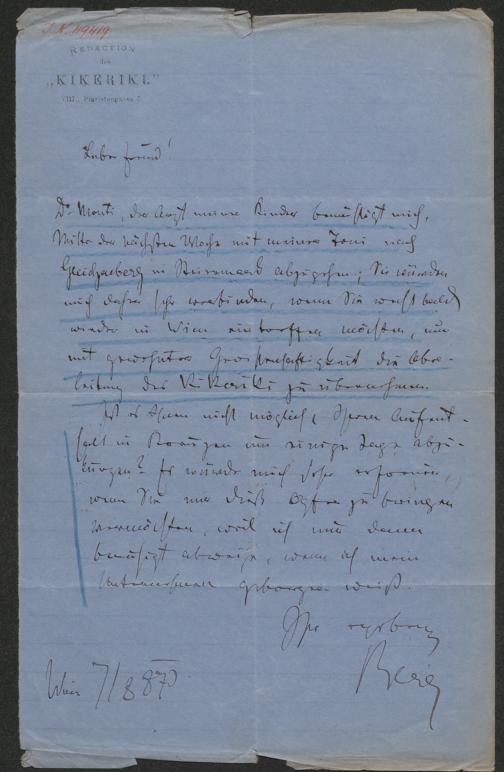 J. N. 49419
REDACTION
des
„KIKERIKI."
VIII., Piaristengasse
Lieber Freund!
Dr Monti, der Arzt meiner Kinder bemüßigt mich,
Mitte der nächsten Woche mit meiner Toni nach
Gleichenberg in Steiermark abzugehen; Sie würden
mich daher sehr verbinden, wenn Sie recht bald
wieder in Wien eintreffen möchten, um
mit gewohnter die Ober-
leitung des Kikeriki zu übernehmen.
Ist es Ihnen nicht möglich, Ihren Aufent-
halt in um einige Tage abzu-
kürzen? Es würde mich sehr erfreuen,
wenn Sie mir dieß Opfer zu bringen
vermöchten, weil ich nur dann
beruhigt abreise, wenn ich mein
geborgen weiß.
Ihr
Berg
Wien 7/8 870